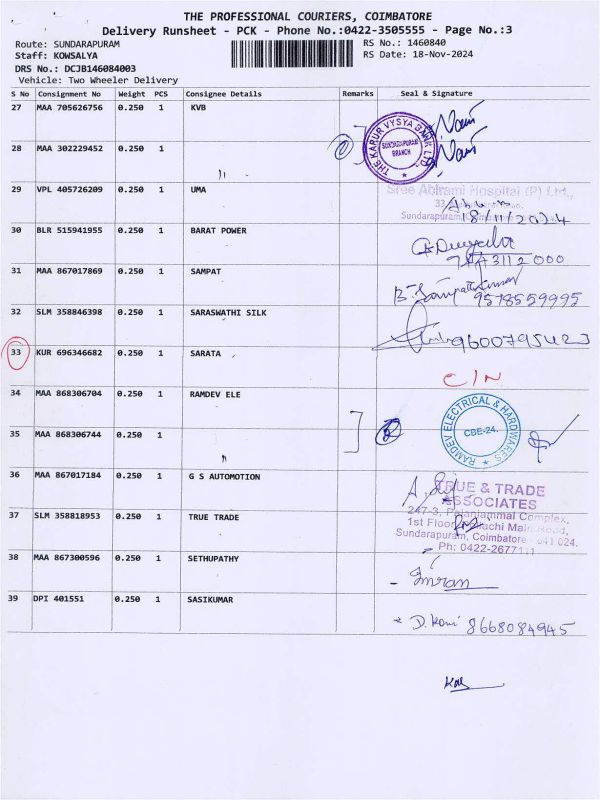 THE PROFESSIONAL COURIERS, COIMBATORE
Delivery Runsheet - PCK - Phone No.:0422-3505555 - Page No.:3
Route: SUNDARAPURAM
RS No.: 1460840
Staff: KOWSALYA
RS Date: 18-Nov-2024
DRS No.: DCJB146084003
Vehicle: Two Wheeler Delivery
S No Consignment No Weight PCS Consignee Details Remarks Seal & Signature
27 MAA 705626756 0.250 1 KVB
THE KARUR VYSYA BANK LTD.
SUNDARAPURAM
BRANCH
28 MAA 302229452 0.250 1 〃
29 VPL 405726209 0.250 1 UMA
Sree Abirami Hospital (P) Ltd.,
33,
Sundarapuram,
18/11/2024
30 BLR 515941955 0.250 1 BARAT POWER
31 MAA 867017869 0.250 1 SAMPAT
9578559995
32 SLM 358846398 0.250 1 SARASWATHI SILK
9600795423
33 KUR 696346682 0.250 1 SARATA
C/N
34 MAA 868306704 0.250 1 RAMDEV ELE
RAMDEV ELECTRICAL & HARDWARES
CBE-24.
35 MAA 868306744 0.250 1 〃
2
36 MAA 867017184 0.250 1 G S AUTOMOTION
TRUE & TRADE
ASSOCIATES
247-3, Palaniammal Complex,
37 SLM 358818953 0.250 1 TRUE TRADE
1st Floor, Main Road,
Sundarapuram, Coimbatore - 641 024.
Ph: 0422-2677111
38 MAA 867300596 0.250 1 SETHUPATHY
- Imran
39 DPI 401551 0.250 1 SASIKUMAR
D. Rani 8668084945